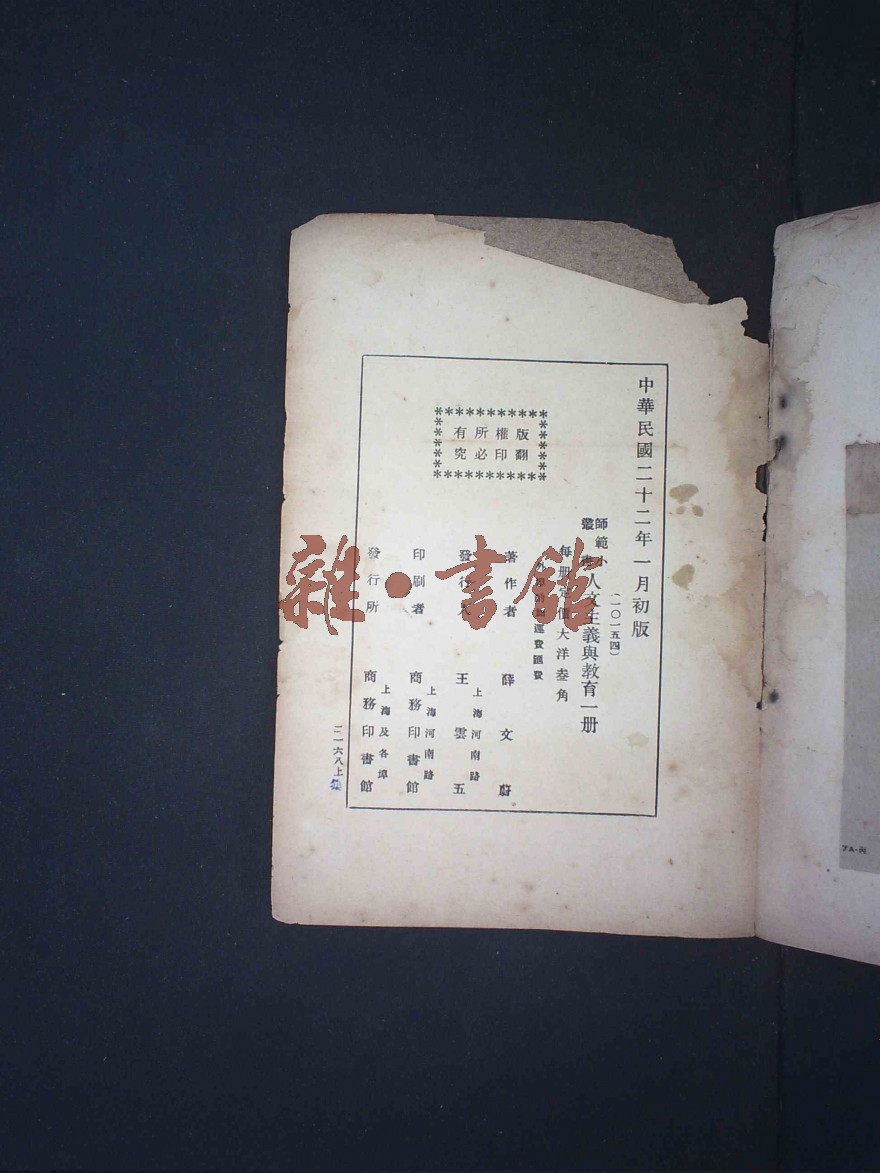 中華民國二十二年一月初版
(一〇一五四)
師範小
叢書
人文主義與教育一册
每册定價大洋叁角
外埠酌加運費匯費
著作者 薛文蔚
發行人 王雲五
上海河南路
印刷者 商務印書館
上海河南路
發行所 商務印書館
上海及各埠
版權所有
翻印必究
二一六八上
雜·書館